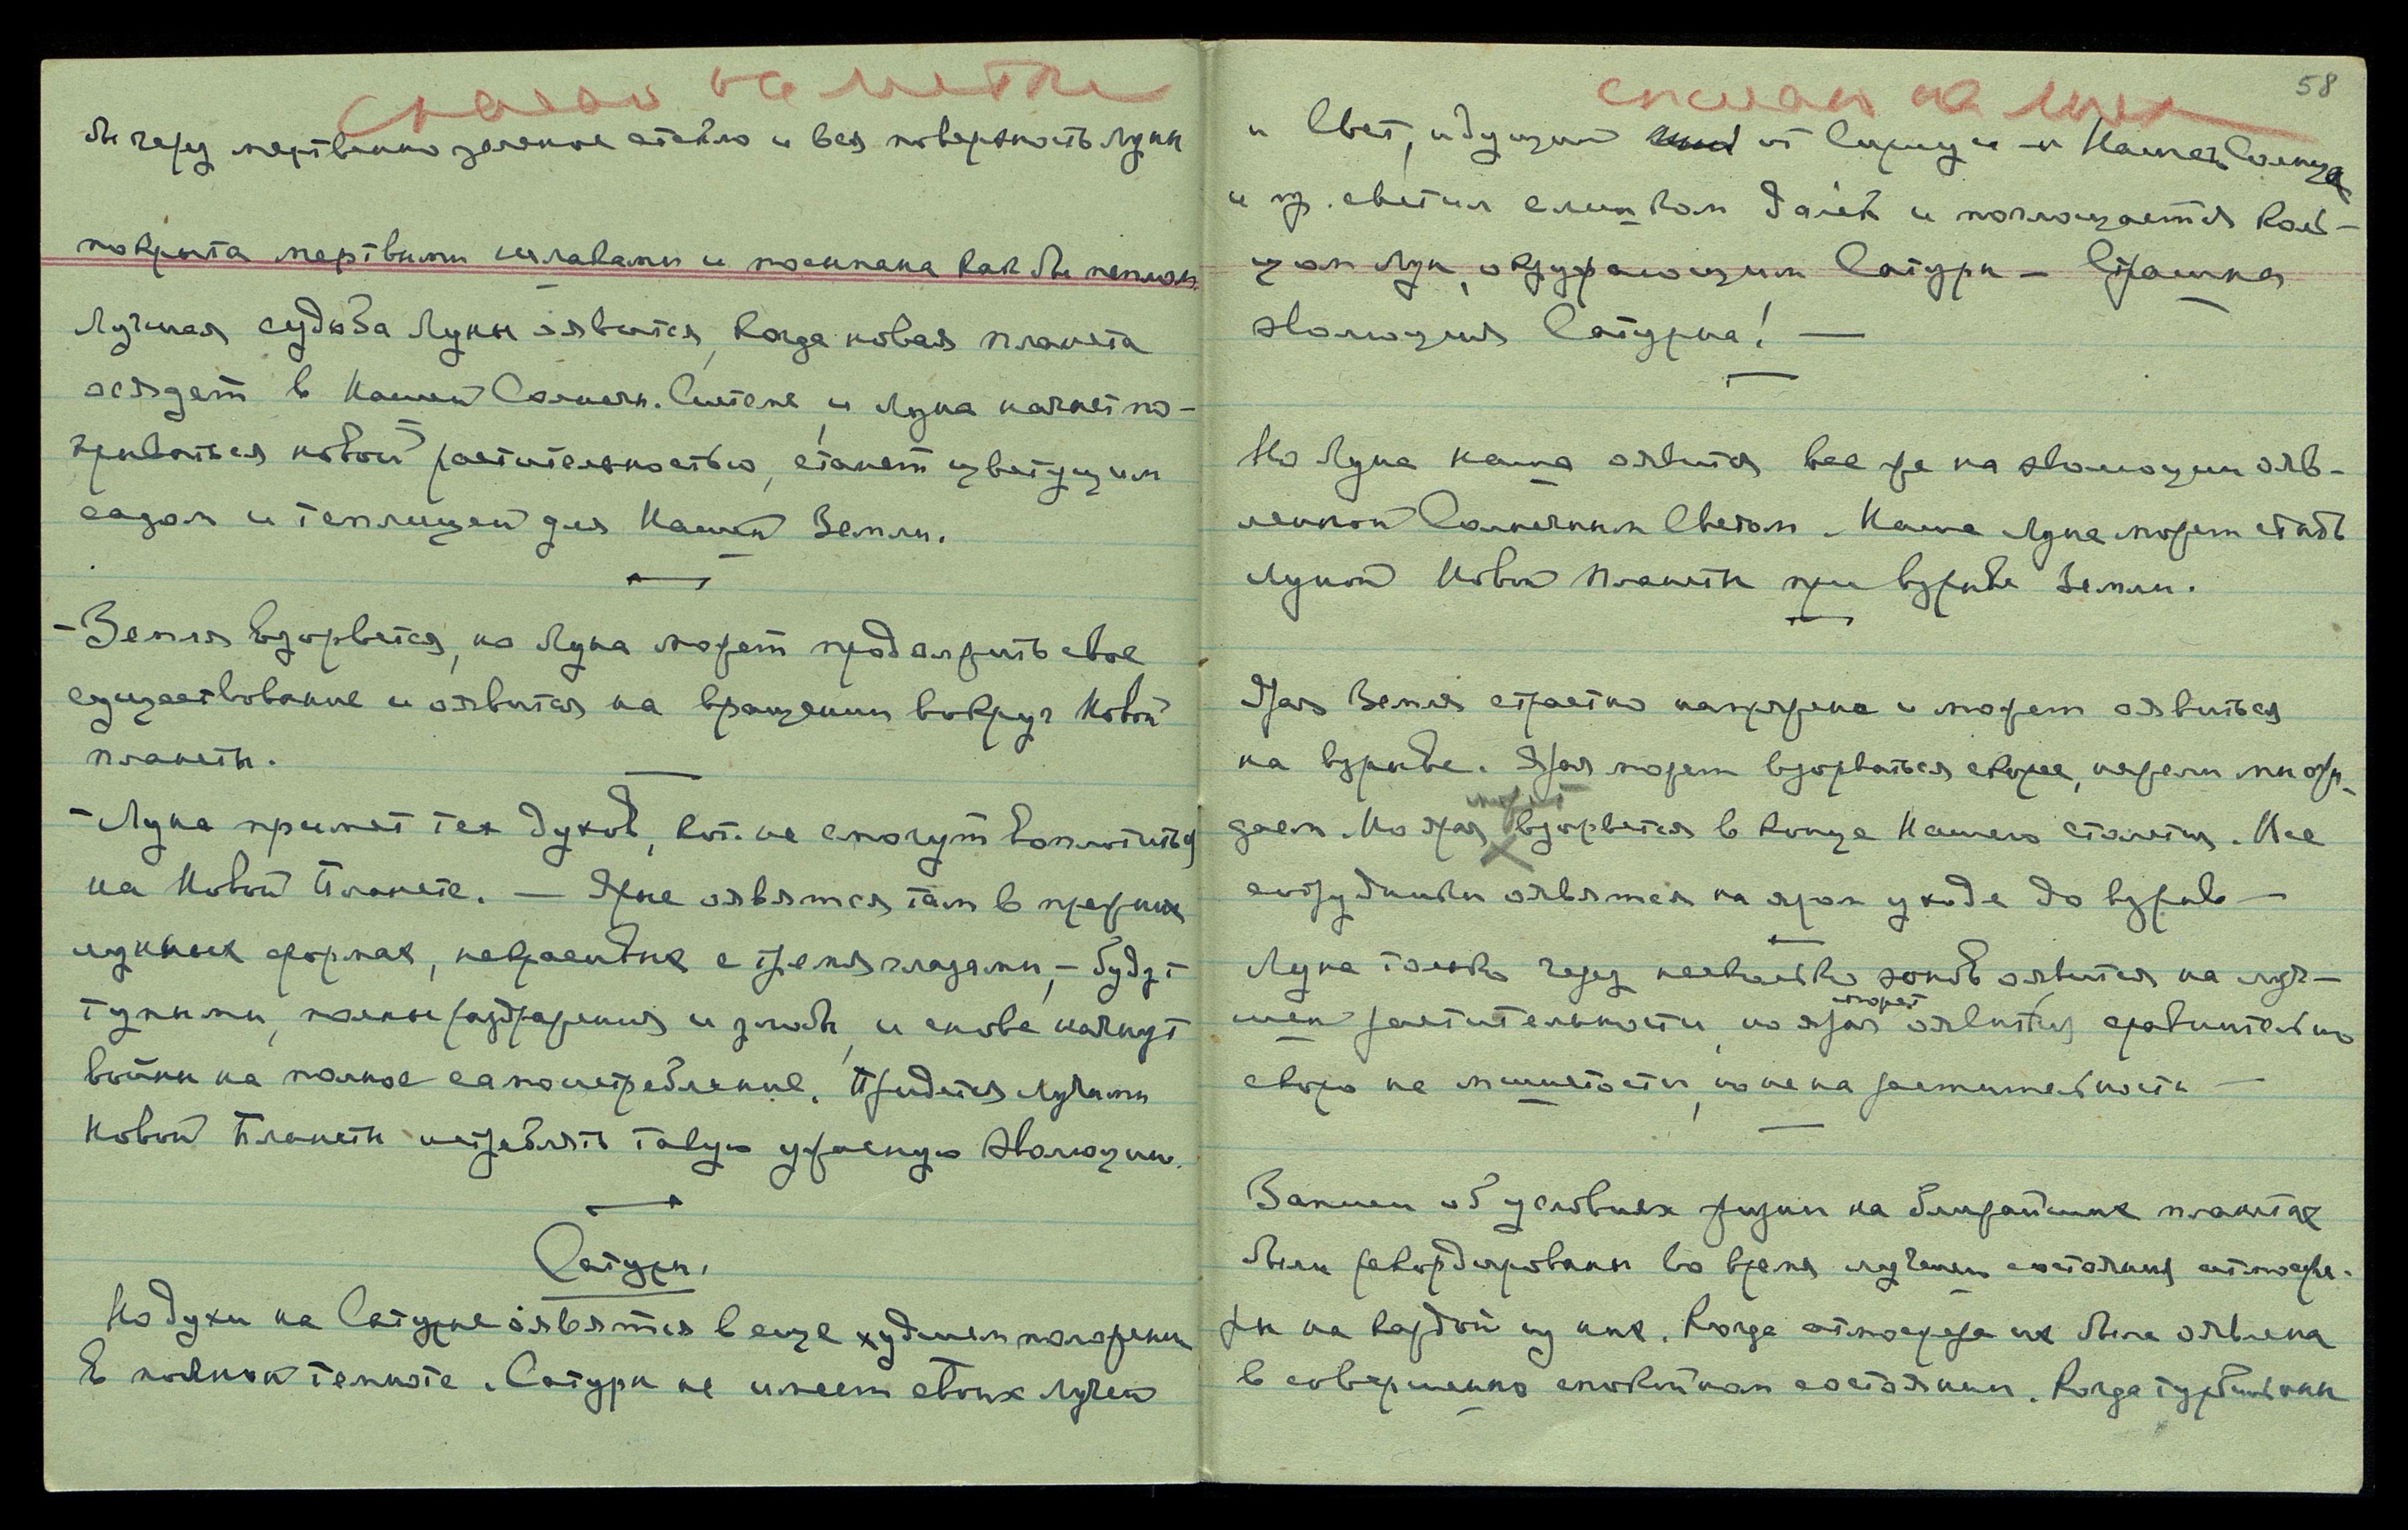 бы через мертвенно зеленое стекло и вся поверхность Луны
покрыта мертвыми шлаками и посыпана как бы пеплом.
Лучшая судьба Луны оявится, когда новая планета
осядет в Нашей Солнечн. Системе и Луна начнет по-
крываться новой растительностью, станет цветущим
садом и теплицей для Нашей Земли.
- Земля взорвется, но Луна может продолжить свое
существование и оявится на вращении вокруг Новой
планеты.
- Луна примет тех духов, кот. не смогут воплотиться
на Новой Планете. — Ярые оявятся там в прежних
лунных формах, некрасивых с тремя глазами, — будут
тупыми, полны раздражения и злобы, и снова начнут
войны на полное самоистребление. Придется Лучами
Новой Планеты истреблять такую ужасную эволюцию.
Сатурн.
Но духи на Сатурне оявятся в еще худшем положении
в полной темноте. Сатурн не имеет своих лучей
58
и Свет, идущий от Сириуса и Нашего Солнца
и др. светил слишком далек и поглощается коль-
цом Лун, окружающим Сатурн — Страшна
эволюция Сатурна! —
Но Луна наша оявится все же на эволюции явл-
ленной Солнечным Светом. Наша Луна может стать
Луной Новой Планеты при взрыве Земли.
Ярая Земля страстно напряжена и может оявиться
на взрыве. Ярая может взорваться скорее, нежели мы ожи-
может
даем. Но ярая взорвется в конце Нашего столетия. Все
сотрудники оявятся на яром уходе до взрыва —
Луна только через несколько эонов оявится на луч-
может
шей растительности, но ярая оявиться сравнительно
скоро на мшистости, но не на растительности —
Записи об условиях жизни на ближайших планетах
были рекордированы во время лучшего состояния атмосфе-
ры на каждой из них. Когда атмосфера их была оявлена
в совершенно спокойном состоянии. Когда турбильоны